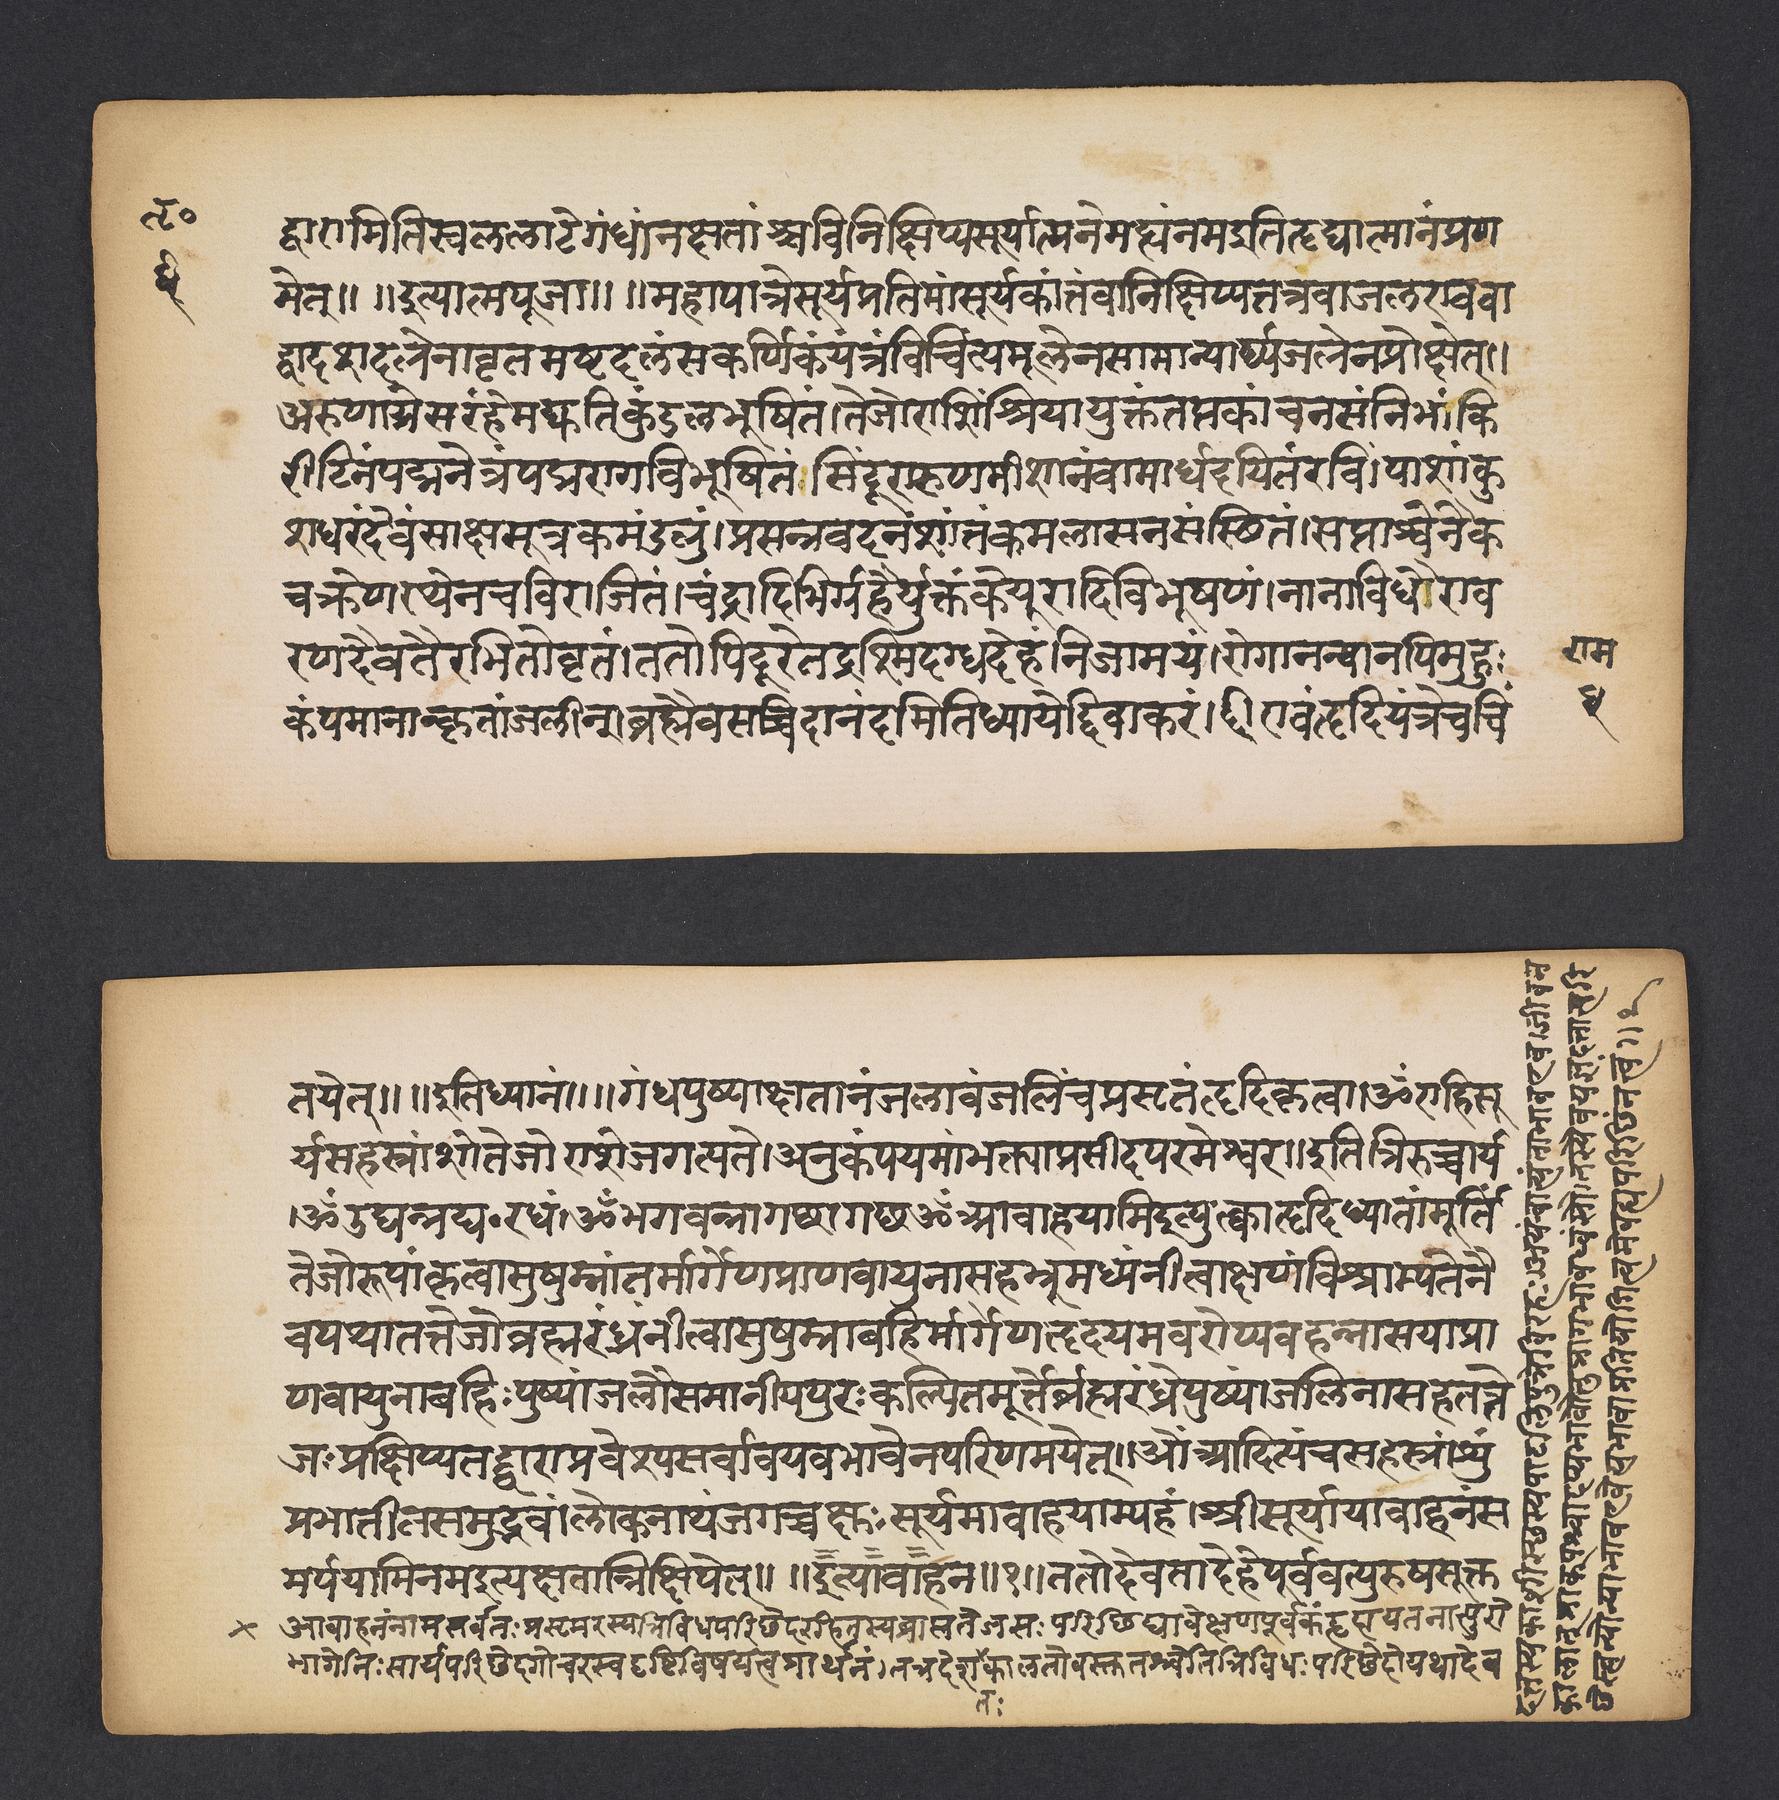 तृ०
४
द्वारामितिस्वललाटेगंधांनक्षतांश्चविनिक्षिप्यसूर्यात्मनेमह्यंनमइतिहृद्यात्मानंप्रण
मेत्॥ ॥इत्यात्मपूजा॥ ॥महापात्रेसूर्यप्रतिमांसूर्यकांतंवानिक्षिप्यतत्रवाजलएववा
द्वादशदलेनावृतमष्टदलंसकर्णिकंयंत्रंविचिंत्यमूलेनसामान्यार्घ्यजलेनप्रोक्षेत्॥
अरुणाग्रेसरंहेमद्युतिकुंडलभूषितं।तेजोराशिंश्रियायुक्तंतप्तकांचनसंनिभां।कि
रीटिनंपद्मनेत्रंपद्मरागविभूषितं।सिंदूरारुणमीशानंवामार्धदयितंरविं।पाशांकु
शधरंदेवंसाक्षसूत्रकमंडलुं।प्रसन्नवदनंशांतंकमलासनसंस्थितं।सप्ताश्वेनैक
चक्रेणरथेनचविराजितं।चंद्रादिभिर्ग्रहैर्युक्तंकेयूरादिविभूषणं।नानाविधैराव
रणदैवतैरभितोवृतं।ततोपिदूरेतद्रश्मिदग्धदेहंनिजामयं।रोगानन्यानपिमुहुः
कंपमानान्कृतांजलीन्।ब्रह्मैवसच्चिदानंदमितिध्यायेद्दिवाकरं।ह्रीं एवंहृदियंत्रेचचिं
राम
४
तयेत्॥ ॥इतिध्यानं॥ ॥गंधपुष्पाक्षतानंजलावंजलिंचप्रसृतंहृदिकृत्वा।ॐएहिसू
र्यसहस्रांशोतेजोराशेजगत्पते।अनुकंपयमांभक्त्याप्रसीदपरमेश्वर॥इतित्रिरुच्चार्य
।ॐउद्यन्नद्य॰रधं।ॐभगवन्नागछागछॐआवाहयामिइत्युत्क्वाहृदिध्यातांमूर्तिं
तेजोरूपांकृत्वासुषुम्नांतर्मार्गेणप्राणवायुनासहभ्रूमध्यंनीत्वाक्षणंविश्राम्यतेनै
वपथातत्तेजोब्रह्मरंध्रंनीत्वासुषुम्नाबहिर्मार्गेणहृदयमवरोप्यवहन्नासयाप्रा
णवायुनाबहिःपुष्पांजलौसमानीयपुरःकल्पितमूर्त्तेर्ब्रह्मरंध्रेपुष्पांजलिनासहतत्ते
जःप्रक्षिप्यतद्द्वाराप्रवेश्यसर्वावयवभावेनपरिणमयेत्॥ओंआदित्यंचसहस्रांशुं
प्रभातीतसमुद्भवां।लोकनाथंजगच्चक्षुःसूर्यमावाहयाम्यहं।श्रीसूर्यायावाहनंस
मर्पयामिनमइत्यक्षतान्निक्षिपेत्॥ ॥इत्यावाहन॥१॥ततोदेवतादेहेपूर्ववत्पुरुषसूक्त
आवाहनंनामसर्वतःप्रसृमरस्यत्रिविधपरिछेदरहितस्य तेजसः परिछिद्यावेक्षणपूर्वकं
भागेनिःसार्यपरिछेदगोचरस्वदृष्टिविषयत्वप्रार्थनं।तत्रदेशकालतोवस्तुतश्चेतित्रिविधःपरिछेदोयथादेव
तः